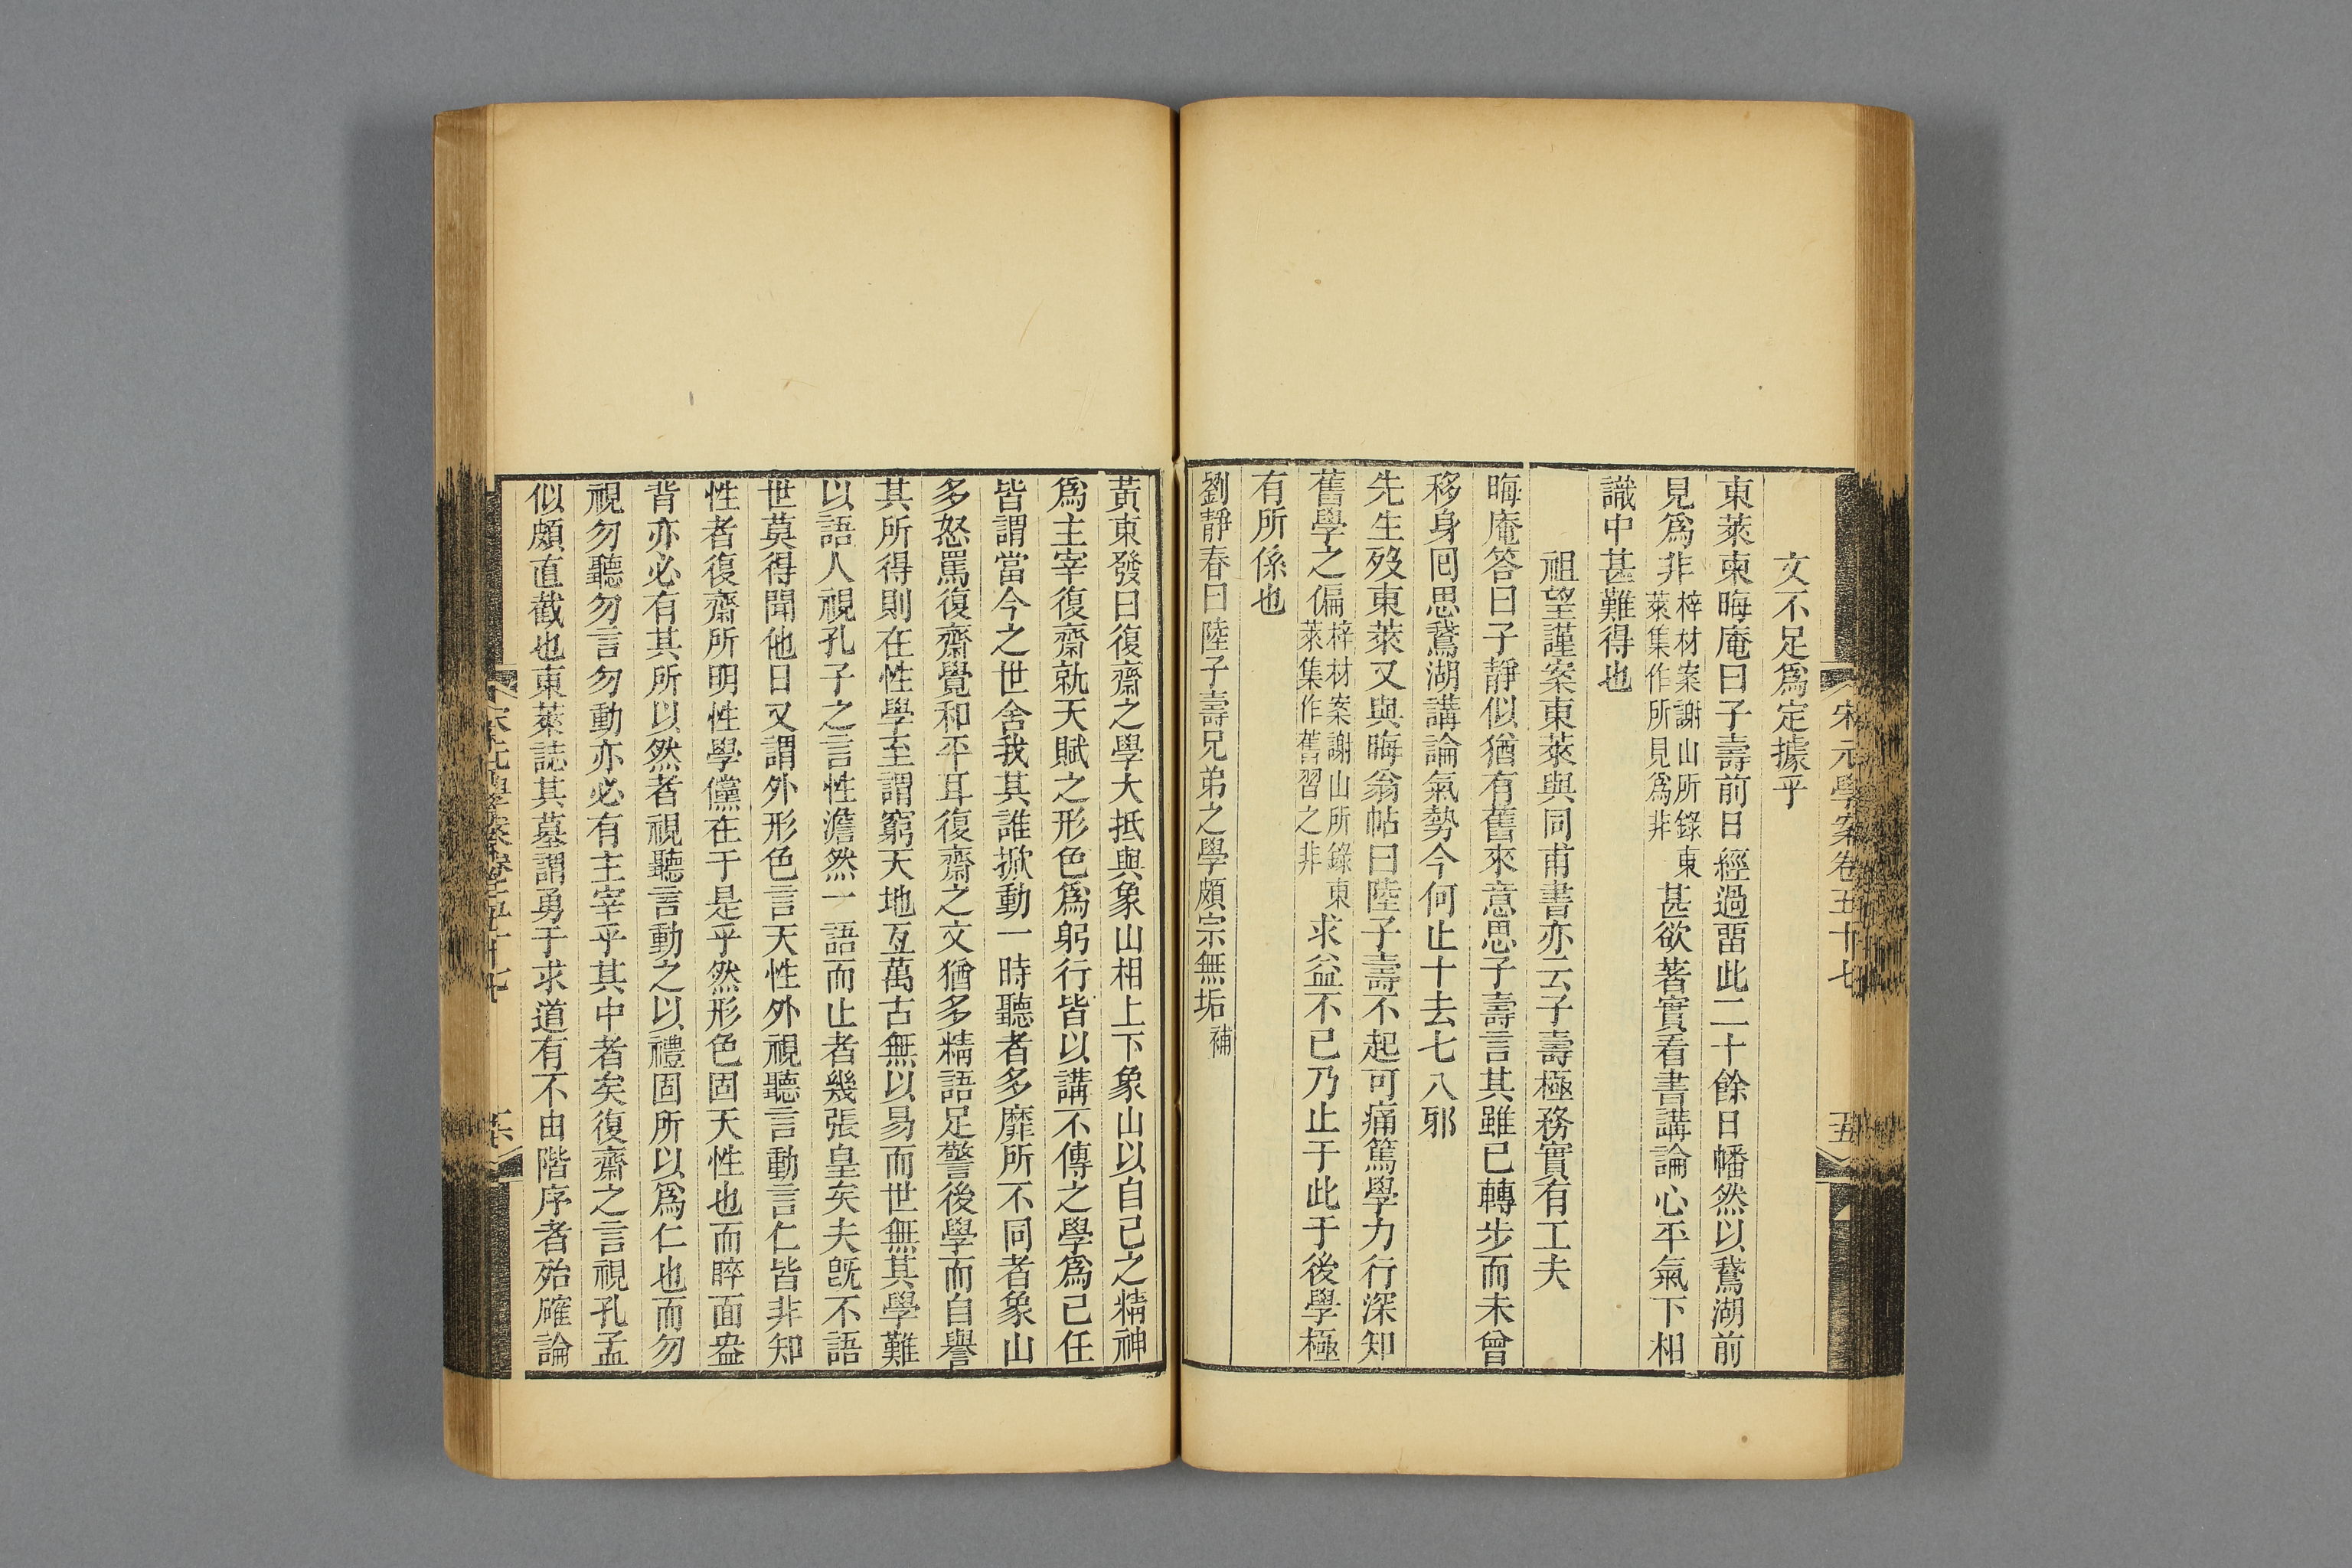 宋元學案卷五十七
十五
文不足爲定據乎
東萊柬晦庵曰子壽前日經過畱此二十餘日幡然以鵞湖前
見爲非梓材案謝山所錄東萊集作所見爲非甚欲著實看書講論心平氣下相
識中甚難得也
祖望謹案東萊與同甫書亦云子壽極務實有工夫
晦庵答曰子靜似猶有舊來意思子壽言其雖已轉步而未曾
移身囘思鵞湖講論氣勢今何止十去七八邪
先生歿東萊又與晦翁帖曰陸子壽不起可痛篤學力行深知
舊學之偏梓材案謝山所錄東萊集作舊習之非求益不已乃止于此于後學極
有所係也
劉靜春曰陸子壽兄弟之學頗宗無垢補
黃東發曰復齋之學大抵與象山相上下象山以自己之精神
爲主宰復齋就天賦之形色爲躬行皆以講不傳之學爲己任
皆謂當今之世舍我其誰掀動一時聽者多靡所不同者象山
多怒罵復齋覺和平耳復齋之文猶多精語足警後學而自譽
其所得則在性學至謂窮天地亙萬古無以易而世無其學難
以語人視孔子之言性澹然一語而止者幾張皇矣夫旣不語
世莫得聞他日又謂外形色言天性外視聽言動言仁皆非知
性者復齋所明性學儻在于是乎然形色固天性也而睟面盎
背亦必有其所以然者視聽言動之以禮固所以爲仁也而勿
視勿聽勿言勿動亦必有主宰乎其中者矣復齋之言視孔孟
似頗直截也東萊誌其墓謂勇于求道有不由階序者殆確論
宋元學案卷五十七